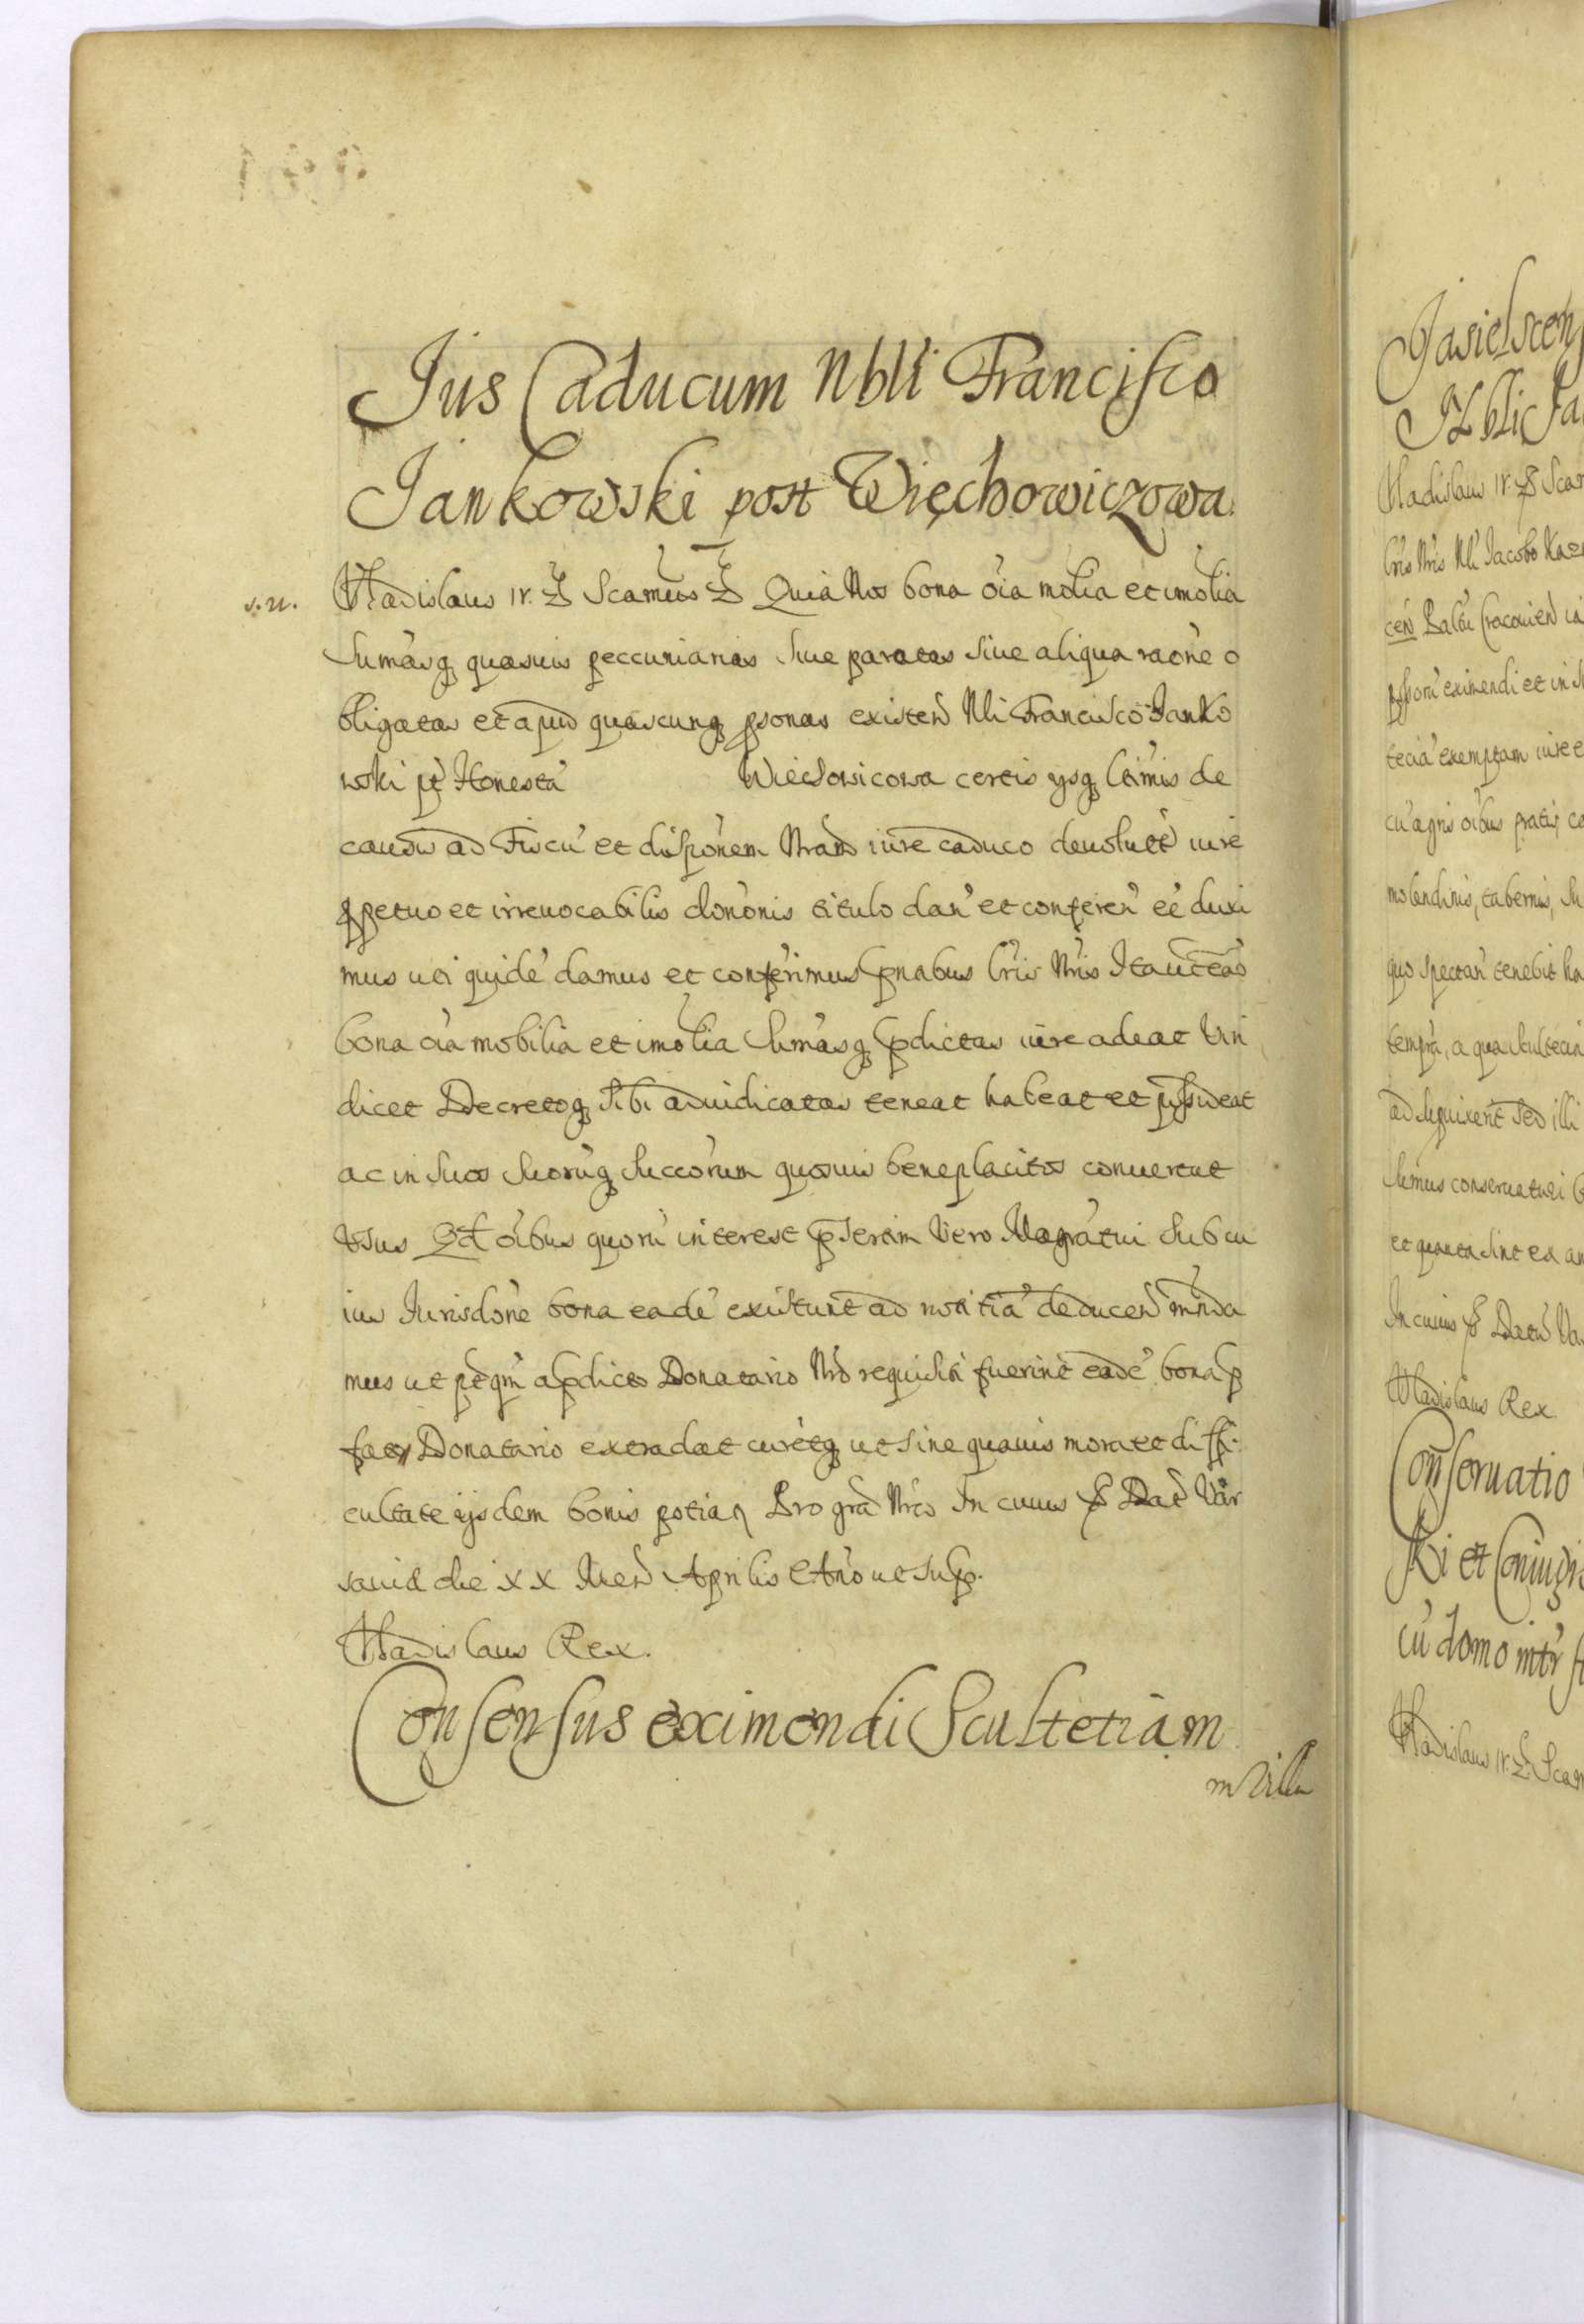 Jus Caducum Nbli Francisco
Jankowski post Więchowiczowa.
s. n.
Vladislaus IV. Scamus Quia Nos bona oia molia et imolia
sumasq quasuis peccuniarias siue paratas siue aliqua raone o
bligatas et apud quascunq psonas existen Nli Francisco Janko
wski pt Honesta Wiechowicowa certis ysq ltimis de
caudu ad Fiscu et disponem Nram iure caduco deuolut iure
ppetuo et irreuocabilis dononis titulo dan et conferen ee duxi
mus uti quide damus et conferimus pntibus lris Nris Ita ut eas
bona oia mobilia et imolia sumasq pdictas iure adeat Vin
dicet Decretoq sibi adiudicatas teneat habeat et possideat
ac in suos suoruq succorum quosuis beneplacitos conuertat
Vsus Qd oibus quoru interest psertim Vero Magratui sub cu
ius Jurisdone bona eade existunt ad notitia deducen manda
mus ut ptqm a pdicto Donatario Nro requisiti fuerint eade bona p
fato Donatario extradat curetq ut sine quauis mora et diffi
cultate ijsdem bonis potiar Pro gra Nra In cuius Dat Var
sauia die XX Men Aprilis Ano ut sup.
Vladislaus Rex.
Consensus eximendi Scultetiam
in Villa
Jasielscen
Vladislaus IV. Scam
lris Nris Nli Jacobo
cen Palatu Cracouien
eximendi et in
tecia exemptam iure e
cu agris oibus pratis
molendinis, tabernis, su
quo spectan tenebit ha
tempra, a qua scultecia
illi
sumus conseruaturi
et quanta sint ea an
In cuius Datu Va
Vladislaus Rex
Conseruatio
ki et Coniugis
cu domo intr
Vladislaus IV. Scam